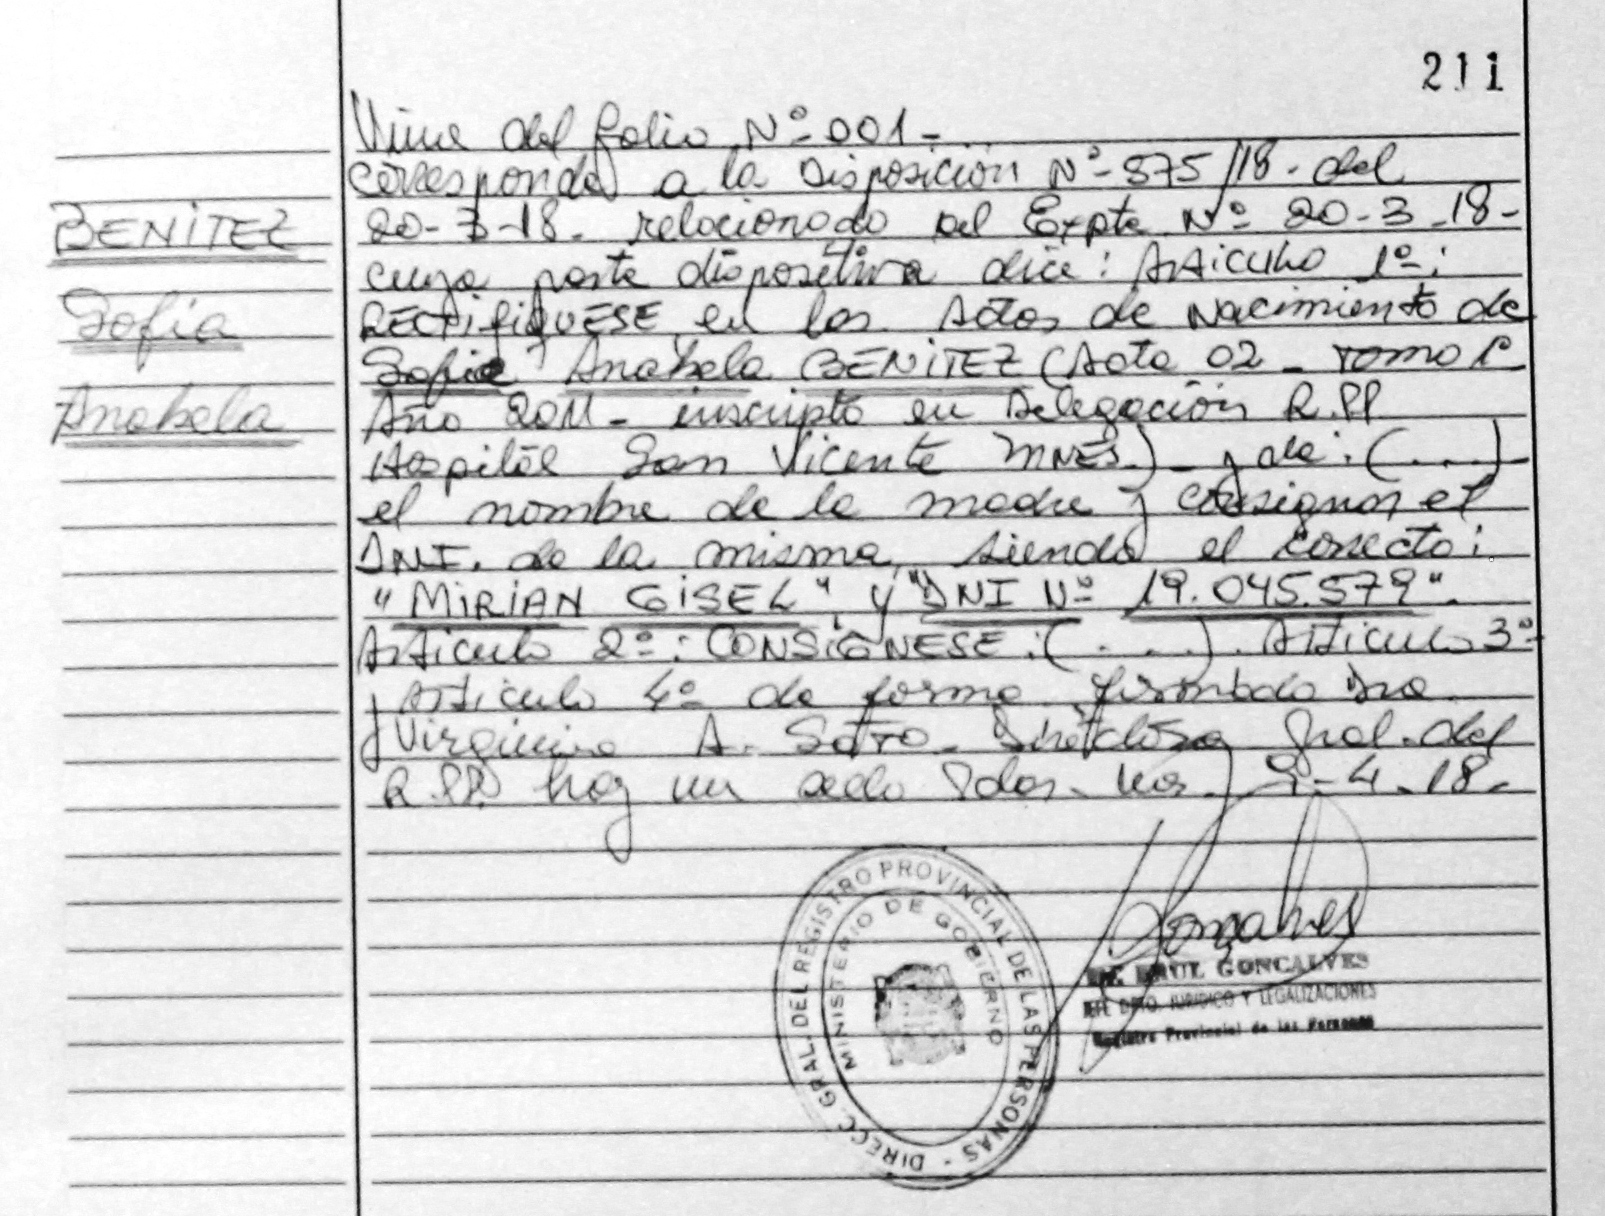 211
Viene del folio Nº 001-
corresponde a la Disposición Nº 875/18. del
BENITEZ
20-3-18. relacionado al Expte Nº 20-3-18-
cuya parte dispositiva dice: Artículo 1º:
Sofia
RECTIFIQUESE en las Actas de Nacimiento de
Sofia Anabela BENITEZ (Acta 02 - Tomo 1º
Anabela
Año 2011 - inscripta en Delegación R.PP
Hospital San Vicente MNES.) y de: (....)
el nombre de la madre y consignar el
DNI. de la misma, siendo el correcto:
"MIRIAN GISEL" y "DNI Nº 19.045.579".
Artículo 2º: CONSIGNESE: (....). Artículo 3º
y Artículo 4º de forma firmado Dra
Virginia A. Soto - Directora Gral. del
R.PP. hay un sello Pdas. 9-4-18.
DIRECC. GRAL. DEL REGISTRO PROVINCIAL DE LAS PERSONAS -
MINISTERIO DE GOBIERNO
Gonçalves
RAUL GONCALVES
JEFE DPTO. JURIDICO Y LEGALIZACIONES
Registro Provincial de las Personas